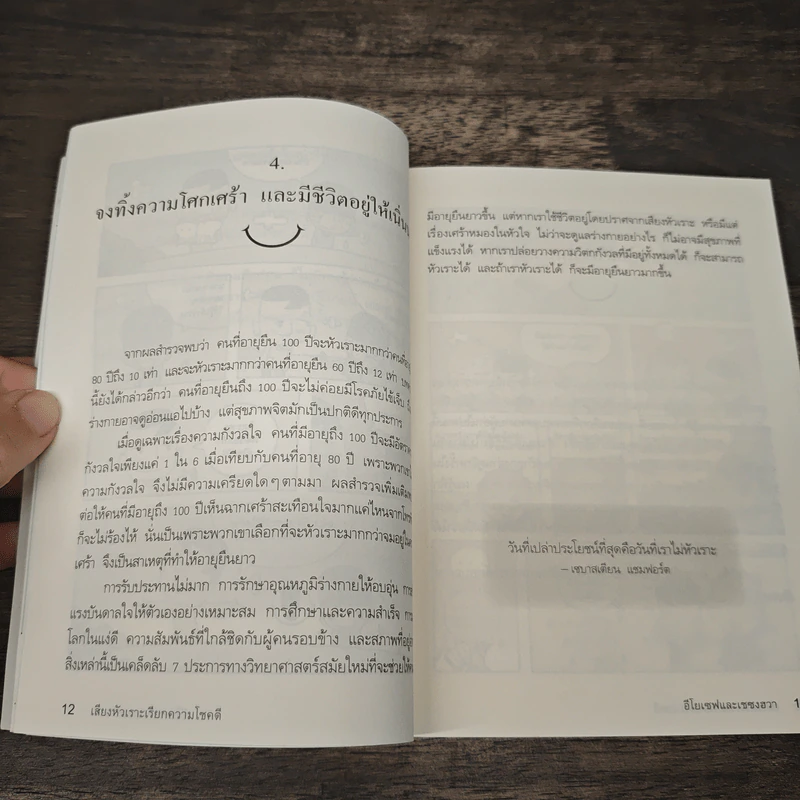 4.
จงทิ้งความโศกเศร้า และมีชีวิตอยู่ให้เนิ่น
จากผลสำรวจพบว่า คนที่อายุยืน 100 ปีจะหัวเราะมากกว่าคน
80 ปีถึง 10 เท่า และจะหัวเราะมากกว่าคนที่อายุยืน 60 ปีถึง 12 เท่า
นี้ยังได้กล่าวอีกว่า คนที่อายุยืนถึง 100 ปีจะไม่ค่อยมีโรคภัยไข้เจ็บ
ร่างกายอาจดูอ่อนแอไปบ้าง แต่สุขภาพจิตมักเป็นปกติดีทุกประการ
เมื่อดูเฉพาะเรื่องความกังวลใจ คนที่มีอายุถึง 100 ปีจะมี
กังวลใจเพียงแค่ 1 ใน 6 เมื่อเทียบกับคนที่อายุ 80 ปี เพราะพวก
ความกังวลใจ จึงไม่มีความเครียดใดๆตามมา ผลสำรวจเพิ่มเติม
ต่อให้คนที่มีอายุถึง 100 ปีเห็นฉากเศร้าสะเทือนใจมากแค่ไหนจาก
ก็จะไม่ร้องไห้ นั่นเป็นเพราะพวกเขาเลือกที่จะหัวเราะมากกว่าจมอยู่
เศร้า จึงเป็นสาเหตุที่ทำให้อายุยืนยาว
การรับประทานไม่มาก การรักษาอุณหภูมิร่างกายให้อบอุ่น
แรงบันดาลใจให้ตัวเองอย่างเหมาะสม การศึกษาและความสำเร็จ
โลกในแง่ดี ความสัมพันธ์ที่ใกล้ชิดกับผู้คนรอบข้าง และสภาพที่อยู่
สิ่งเหล่านี้เป็นเคล็ดลับ 7 ประการทางวิทยาศาสตร์สมัยใหม่ที่จะช่วยให้
12 เสียงหัวเราะเรียกความโชคดี
มีอายุยืนยาวขึ้น แต่หากเราใช้ชีวิตอยู่โดยปราศจากเสียงหัวเราะ หรือมีแต่
เรื่องเศร้าหมองในหัวใจ ไม่ว่าจะดูแลร่างกายอย่างไร ก็ไม่อาจมีสุขภาพที่
แข็งแรงได้ หากเราปล่อยวางความวิตกกังวลที่มีอยู่ทั้งหมดได้ ก็จะสามารถ
หัวเราะได้ และถ้าเราหัวเราะได้ ก็จะมีอายุยืนยาวมากขึ้น
วันที่เปล่าประโยชน์ที่สุดคือวันที่เราไม่หัวเราะ
– เซบาสเตียน แชมฟอร์ต
อีโยเซฟและเชซงฮวา